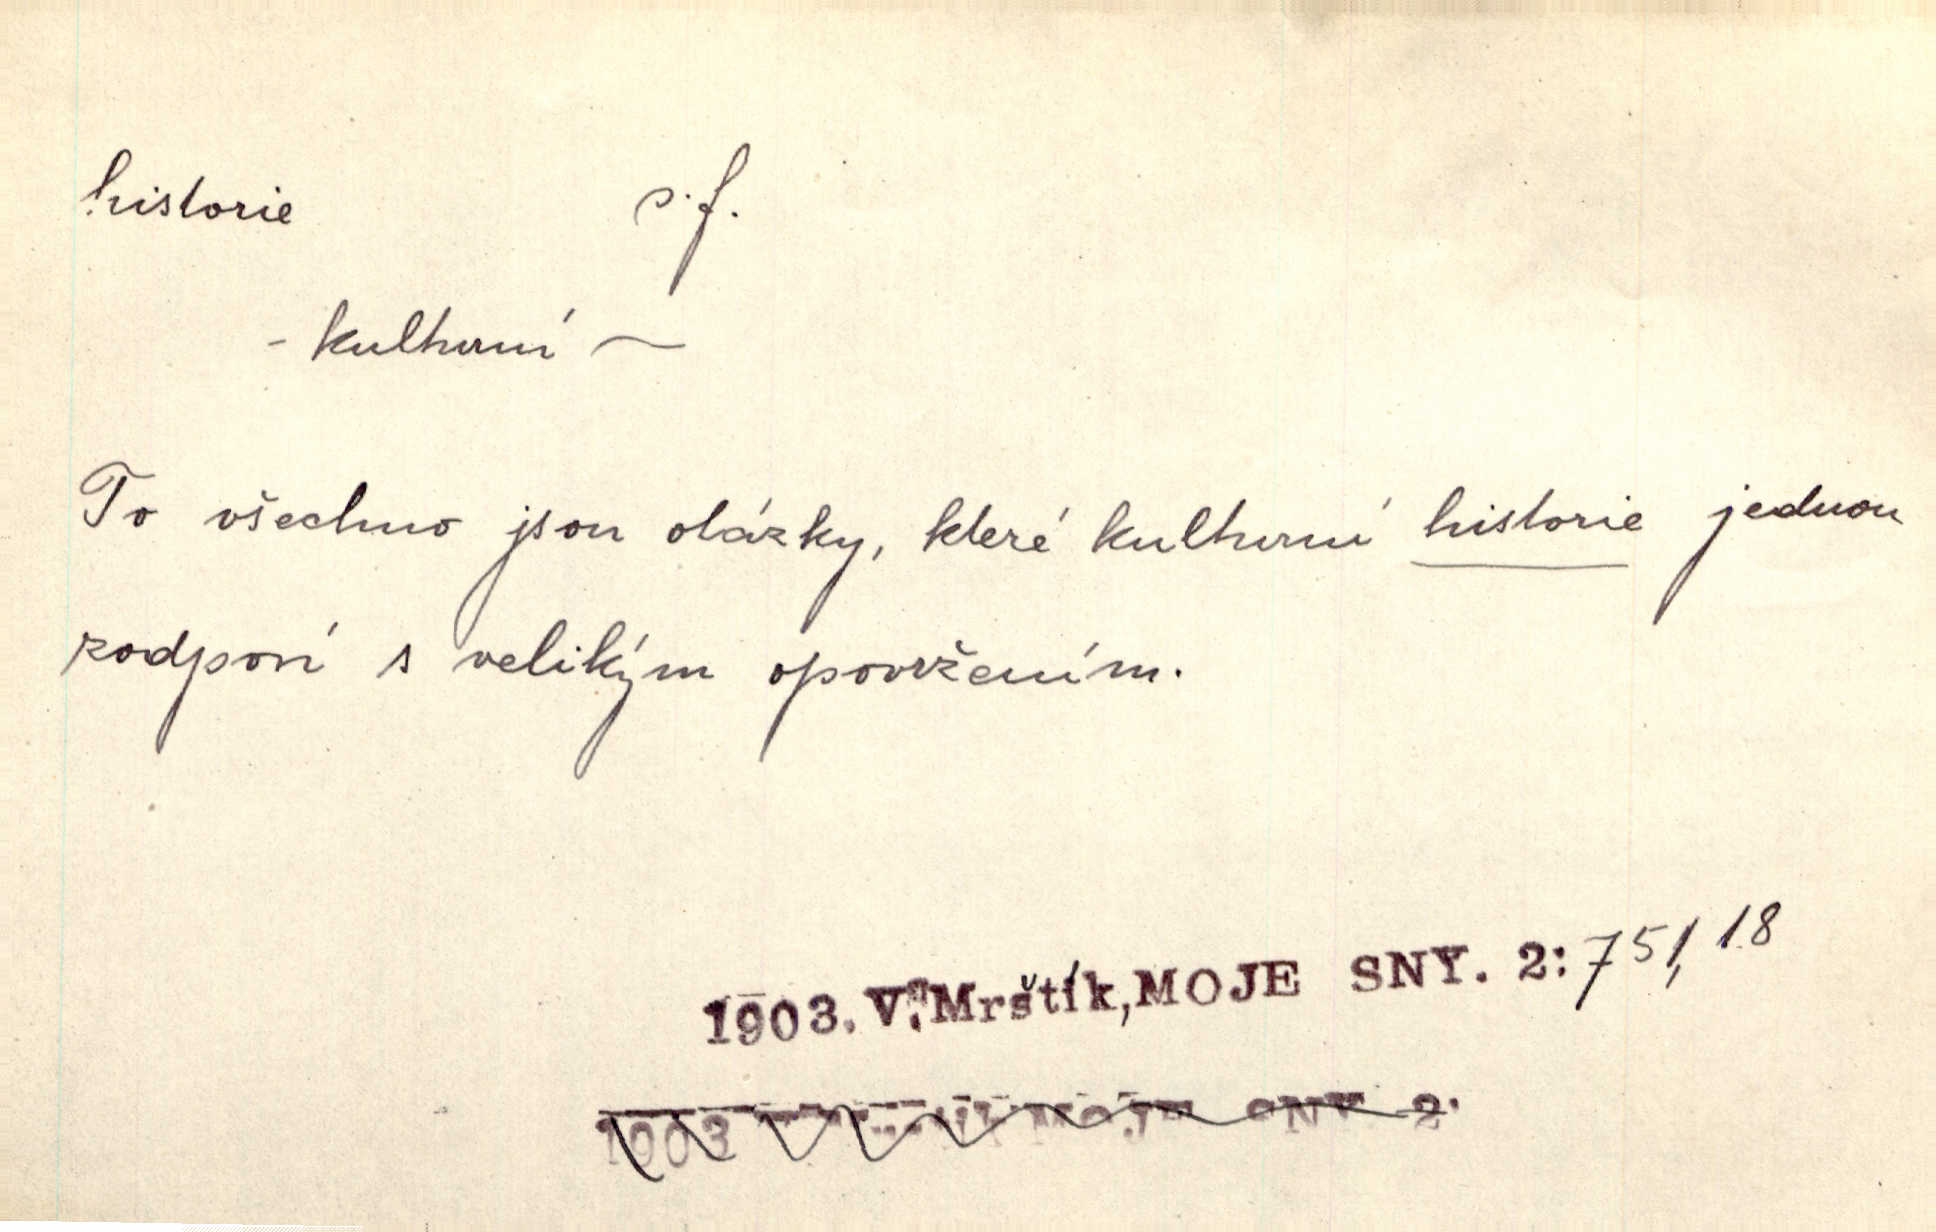 historie s.f.
- kulturní ~
To všechno jsou otázky, které kulturní historie jednou
zodpoví s velikým opovržením.
1903. V. Mrštík, MOJE SNY. 2: 751, 18
1903 MOJE SNY 2: